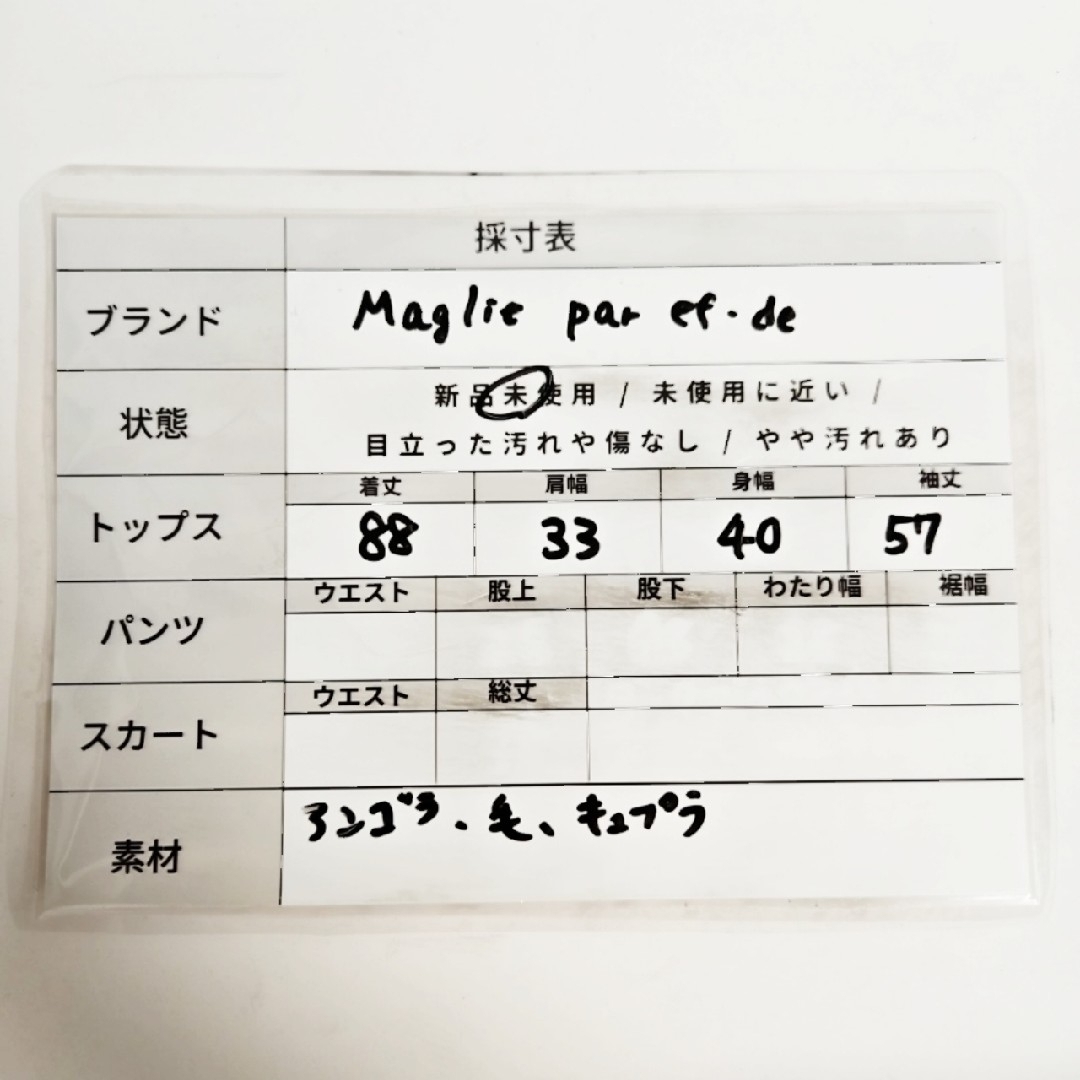 採寸表
ブランド Maglie par ef-de
状態 新品未使用 / 未使用に近い /
目立った汚れや傷なし / やや汚れあり
着丈 肩幅 身幅 袖丈
トップス 88 33 40 57
ウエスト 股上 股下 わたり幅 裾幅
パンツ
ウエスト 総丈
スカート
アンゴラ、毛、キュプラ
素材